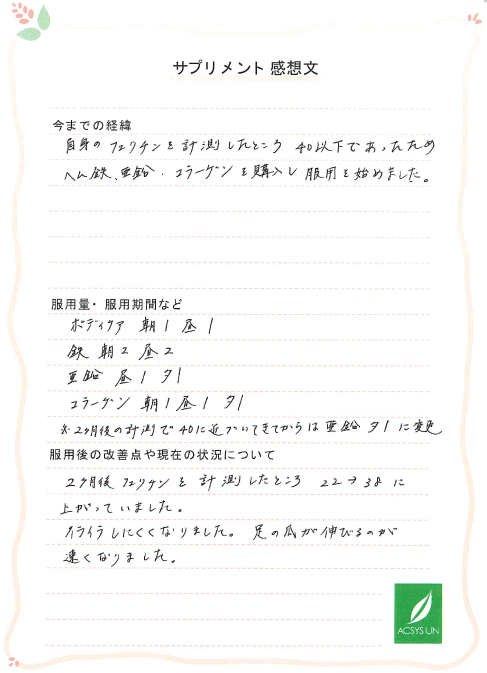 サプリメント 感想文
今までの経緯
自身の フェリチンを 計測したところ 40以下であったため
ヘム鉄、亜鉛・コラーゲンを購入し 服用を始めました。
服用量・服用期間など
ボディケア 朝1 昼1
鉄 朝2 昼2
亜鉛 昼1 夕1
コラーゲン 朝1 昼1 夕1
※2ヶ月後の計測で40に近づいてきてからは亜鉛 夕1に変更
服用後の改善点や現在の状況について
2ヶ月後 フェリチンを 計測したところ 22→38に
上がっていました。
イライラしにくくなりました。足の爪が伸びるのが
速くなりました。
ACSYS UN